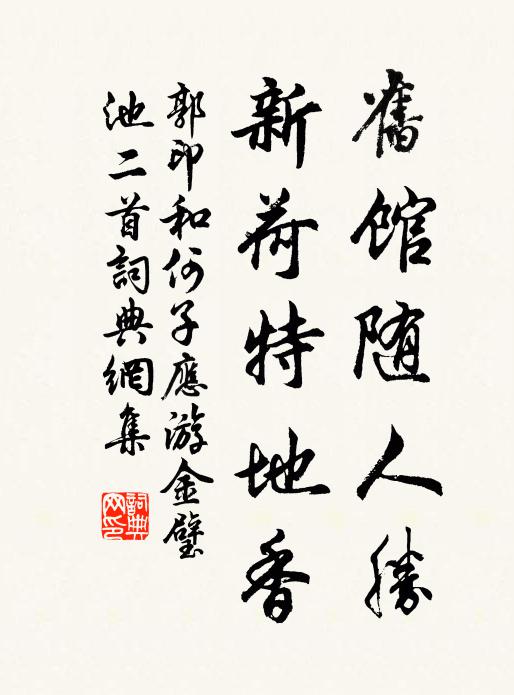 舊館随人勝
新荷特地香
郭印和何子應游金璧
池二首詞典網集
詞典網印